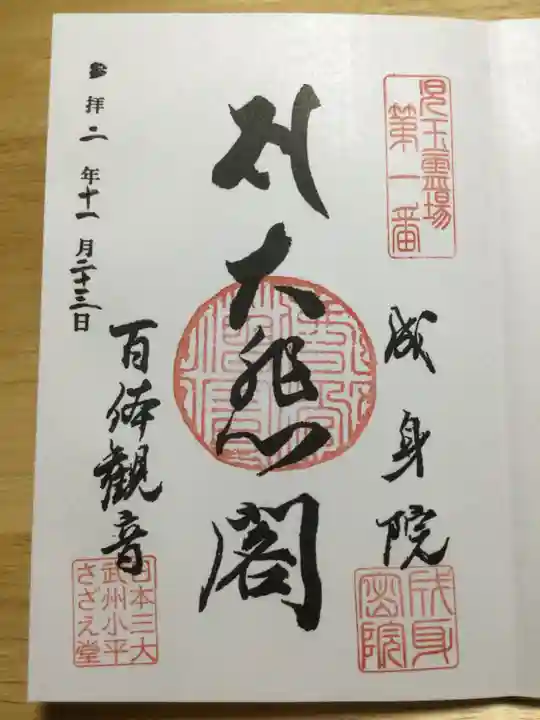 児玉霊場
第一番
成身院
大悲閣
百体観音
参拝二年十一月二十三日
日本三大
武州小平
さざえ堂
成身
密院